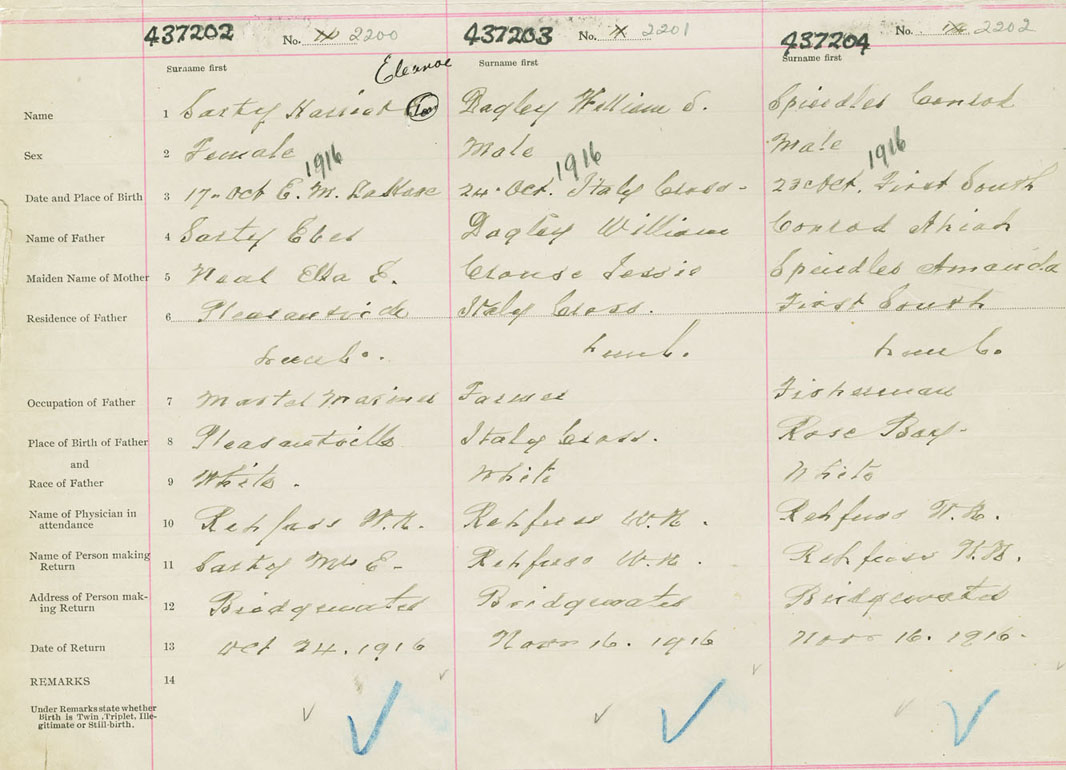 437202 No. 2200 437203 No. 2201 437204 No. 2202
Surname first Eleanor Surname first Surname first
Name 1 Sarty Harriet Dagley William S. Spindler Conrod
Sex 2 Female Male Male
1916 1916 1916
Date and Place of Birth 3 17-Oct E. M. LaHave 24-Oct. Italy Cross- 23 Oct. First South
Name of Father 4 Sarty Eber Dagley William Conrod Abiah
Maiden Name of Mother 5 Neal Ella E. Crouse Jessie Spindler Amanda
Residence of Father 6 Pleasantville Italy Cross. First South
Lun Co. Lun C. Lun Co.
Occupation of Father 7 Master Mariner Farmer Fisherman
Place of Birth of Father 8 Pleasantville Italy Cross. Rose Bay-
and
Race of Father 9 White. White White
Name of Physician in
attendance 10 Rehfuss W.K. Rehfuss W.K. Rehfuss W.K.
Name of Person making
Return 11 Sarty Mrs E- Rehfuss W.K. Rehfuss W.K.
Address of Person mak-
ing Return 12 Bridgewater Bridgewater Bridgewater
Date of Return 13 Oct 24.1916 Novr 16. 1916 Novr 16. 1916.
REMARKS 14
Under Remarks state whether
Birth is Twin, Triplet, Ille-
gitimate or Still-birth.